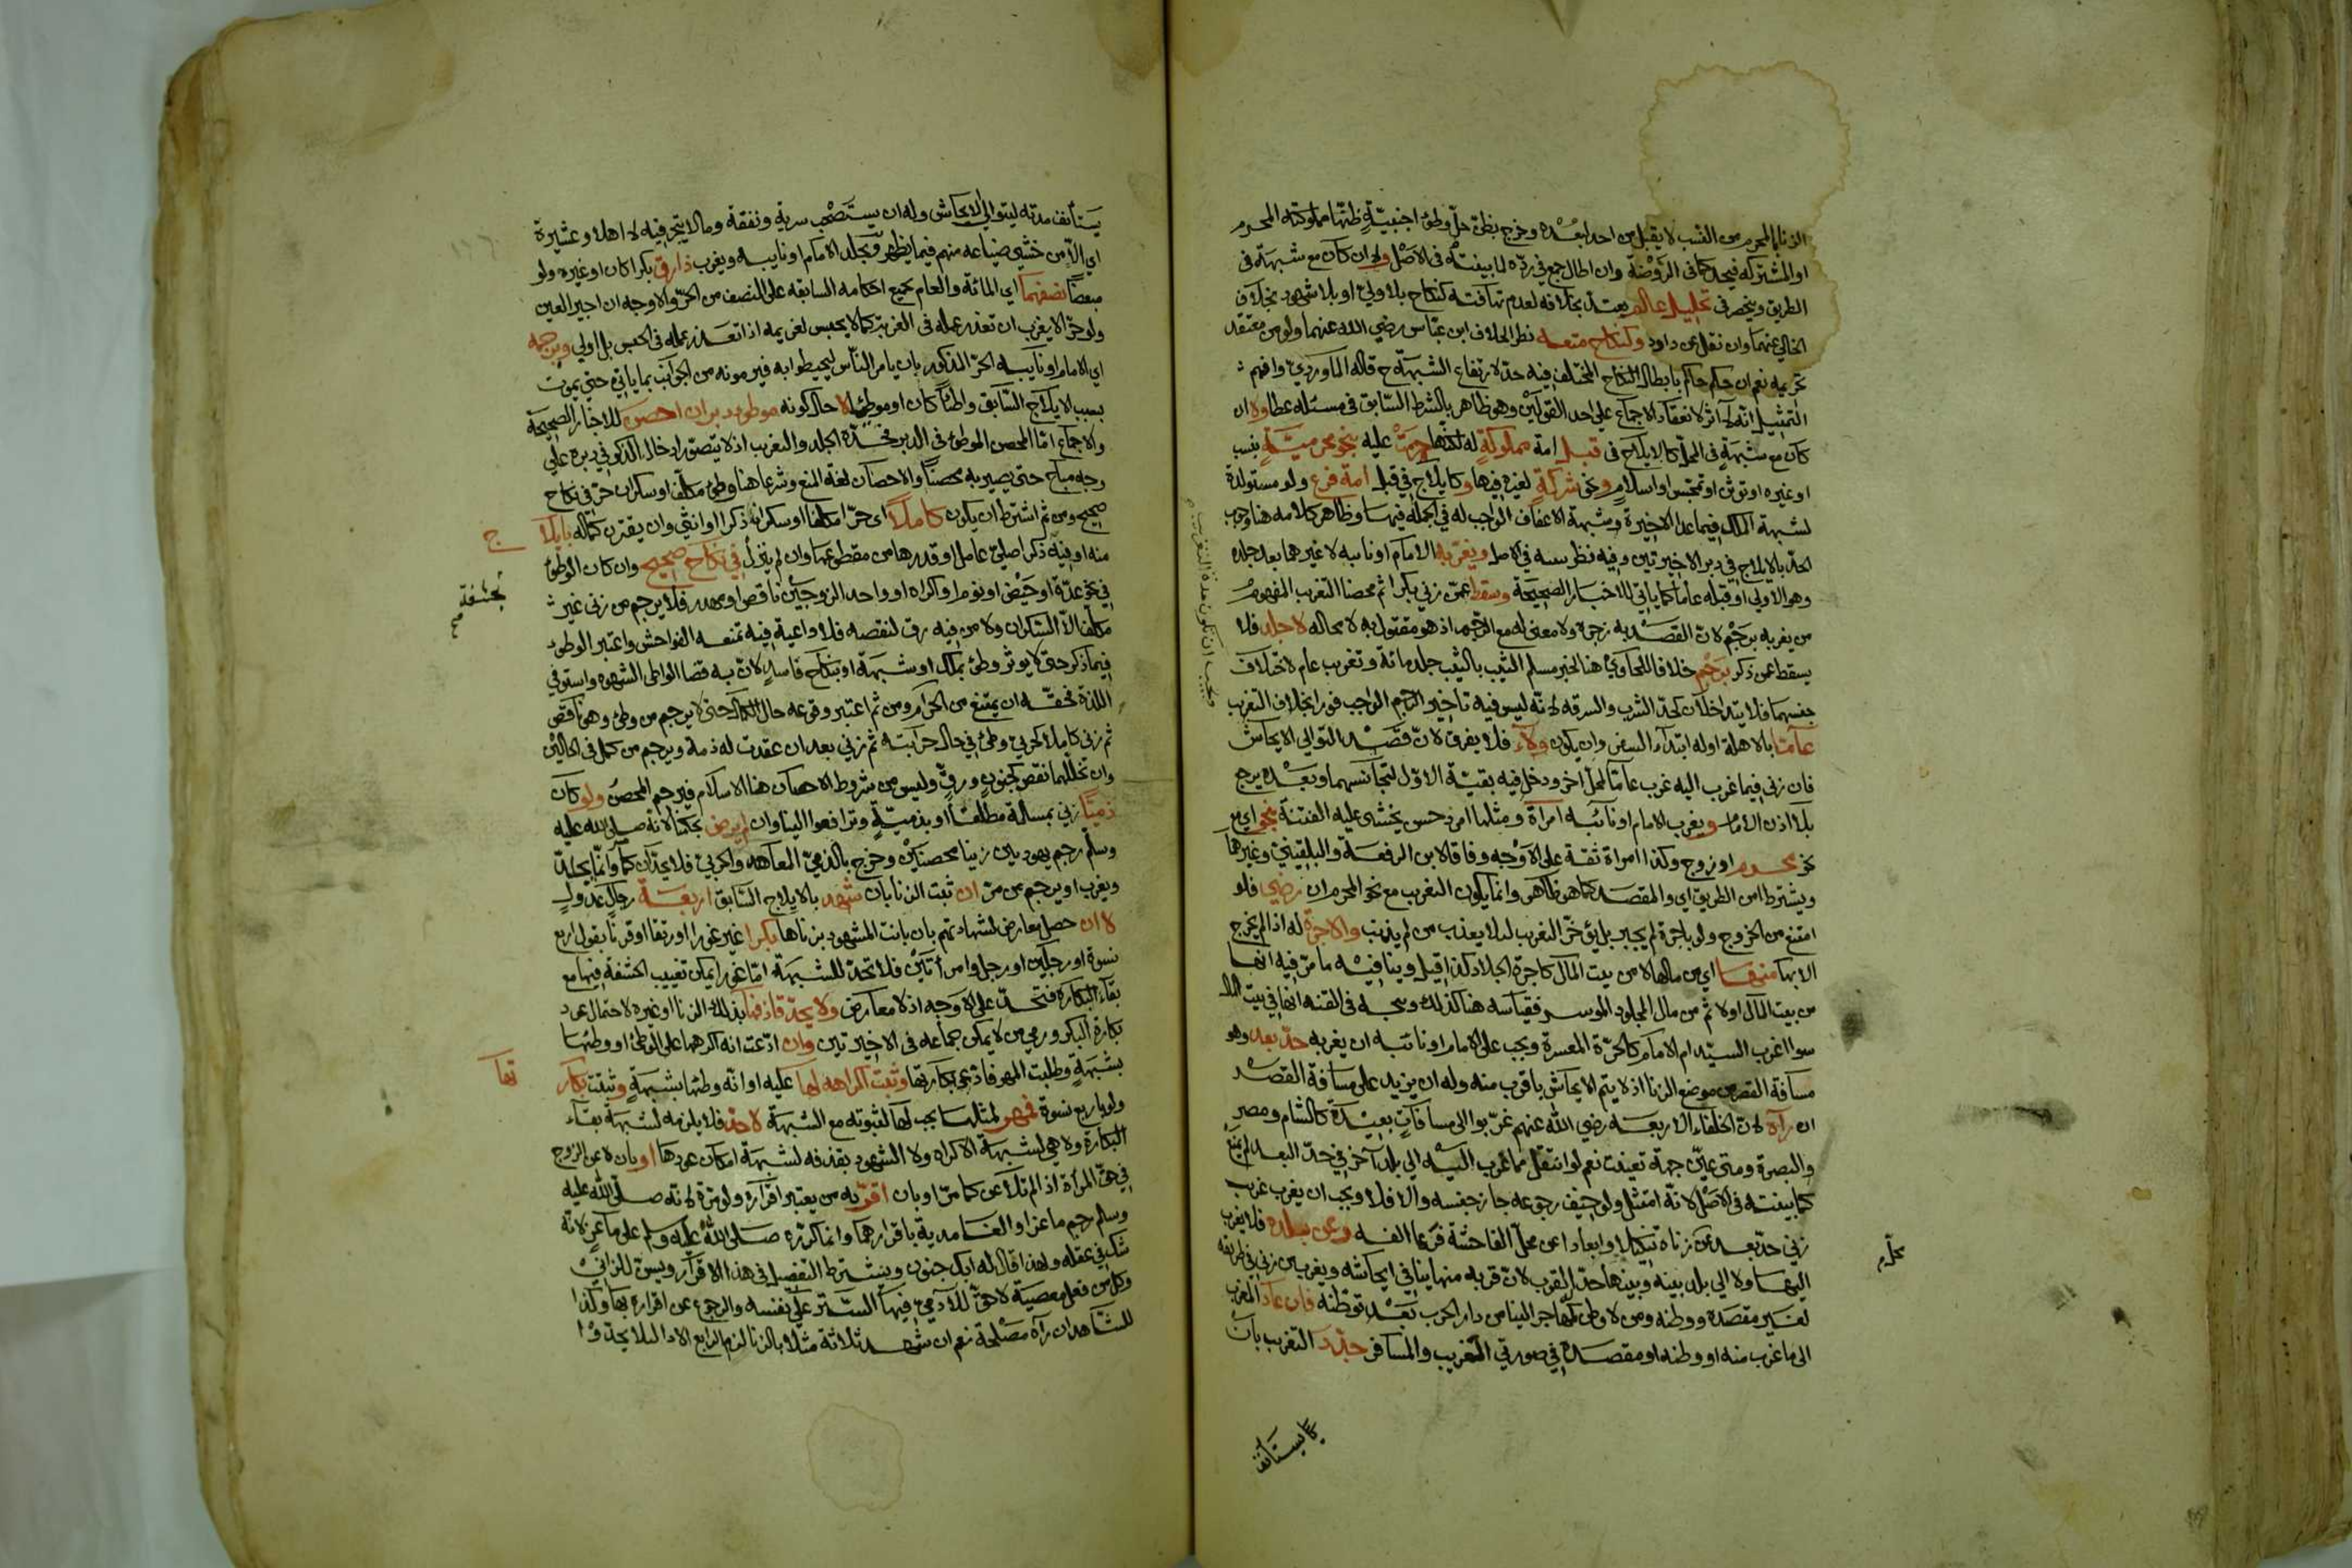 الزنا بالمحرم من النسب لا يقبل من احد لبعده وخرج بظن حل وطئ اجنبية ظنها مملوكته المحرم
او المشتركه فيحد كما في الروضة وان اطال جمع في رده لما بينته في الاصل ولا ان كان مع شبهة في
الطريق وينحصر في تحليل عالم يعتد بخلافه لعدم تهافته كنكاح بلا ولي او بلا شهود بخلاف
الخالي عنهما وان نقل عن داود وكنكاح متعه نظرا لخلاف ابن عباس رضي الله عنهما ولو من معتقد
تحريمه نعم ان حكم حاكم بابطال النكاح المختلف فيه حد لارتفاع الشبهة ح قاله الماوردي وافهم
التمثيل انه لا اثر لانعقاد الاجماع على احد القولين وهو ظاهر بالشرط السابق في مسئلة عطا ولا ان
كان مع شبهة في المحل كالايلاج في قبل امة مملوكة له لكنها حرمت عليه بنحو محرمية بنسب
او غيره او توثن او تمجس او اسلام ونحو شركة لغيره فيها وكايلاج في قبل امة فرع ولو مستولدة
لشبهة الملك فيما عدا الاخيرة وشبهة الاعفاف الواجب له في الجملة فيها وظاهر كلامه هنا وجوب
الحد بالايلاج في دبر الاخيرتين وفيه نظر بينته في الاصل ويغربه الامام او نايبه لا غيرهما بعد جلده
وهو الاولى او قبله عاما كما ياتي للاخبار الصحيحة وسقط عمن زنى بكرا ثم محصنا التغريب المفهوم
من يغربه برجم لان القصد به زجره ولا معنى له مع الرجم اذ هو مقتول به لا محاله لا جلد فلا
يسقط عمن ذكر برجم خلافا للحاوي هنا لخبر مسلم الثيب بالثيب جلد مائة وتغريب عام لاختلاف
جنسهما فلا يتداخلان كحد الشرب والسرقه لانه ليس فيه تاخير الرجم الواجب فورا بخلاف التغريب
عاما بالاهلة اوله ابتداء السفر وان يكون ولاء فلا يفرق لان قصد التوالي الايحاش
فان زنى فيما غرب اليه غرب عاما لمحل اخر ودخل فيه بقية الاول لتجانسهما وبعده يرجع
بلا اذن الامام ويغرب الامام او نائبه امراة ومثلها امرد حسن يخشى عليه الفتنة بنحو اي مع
نحو محرم او زوج وكذا امراة ثقة على الاوجه وفاقا لابن الرفعة والبلقيني وغيرهما
ويشترط امن الطريق اي والمقصد كما هو ظاهر وانما يكون التغريب مع نحو المحرم ان رضي فلو
امتنع من الخروج ولو باجرة لم يجبر بل يؤخر التغريب لئلا يعذب من لم يذنب والاجرة له اذا لم يخرج
الا بها منها اي من مالها لا من بيت المال كاجرة الجلاد كذا قيل وينافيه ما مر فيه انها
من بيت المال اولا ثم من مال المجلود الموسر فقياسه هنا كذلك ويتجه في القنه انها في بيت المال
سوا اغرب السيد ام الامام كالحرة المعسرة ويجب على الامام او نائبه ان يغربه حد بعد وهو
مسافة القصر من موضع الزنا اذ لا يتم الايحاش باقرب منه وله ان يزيد على مسافة القصر
ان رآه لان الخلفاء الاربعه رضي الله عنهم غربوا الى مسافات بعيدة كالشام ومصر
والبصرة ومتى عين جهة تعينت نعم لو انتقل مما غرب اليه الى بلد آخر في حد البعد لم يمنع
كما بينته في الاصل لانه امتثل ولو خيف رجوعه جاز حبسه والا فلا ويجب ان يغرب غريب
زنى حد بعد عن زناه تنكيلا وابعادا عن محل الفاحشة فربما الفه وعن بلده فلا يغرب
اليها ولا الى بلد بينه وبينها حد القرب لان قربه منها ينافي ايحاشه ويغرب من زنى في طريقه
لغير مقصده ووطنه ومن لا وطن له كمهاجر الينا من دار الحرب بعد توطنه فان عاد المغرب
الى ما غرب منه او وطنه او مقصده في صورتي الغريب والمسافر جدد التغريب بان
محرم
ويجب ان تكون مدة التغريب
يستانف
يستأنف مدته ليتوالى الايحاش وله ان يستصحب سرية ونفقة ومالا يتجر فيه لا اهلا وعشيرة
اي الا من خشي ضياعه منهم فيما يظهر ويجلد الامام او نايبه ويغرب ذا رق بكرا كان او غيره ولو
مبعضا نصفهما اي المائة والعام بجميع احكامه السابقه على النصف من الحر والاوجه ان اجير العين
ولو حرا لا يغرب ان تعذر عمله في الغربة كما لا يحبس لغريمه اذا تعذر عمله في الحبس بل اولى ويرجمه
اي الامام او نايبه الحر المذكور بان يامر الناس ليحيطوا به فيرمونه من الجوانب بما ياتي حتى يموت
بسبب الايلاج السابق واطئا كان او موطئا لا حال كونه موطوء دبر ان احصن للاخبار الصحيحة
والاجماع اما المحصن الموطوء في الدبر فحده الجلد والتغريب اذ لا يتصور ادخال الذكر في دبره على
وجه مباح حتى يصير به محصنا والاحصان لغة المنع وشرعا هنا وطئ مكلف او سكران حر في نكاح
صحيح ومن ثم اشترط ان يكون كاملا اي حرا مكلفا او سكران ذكرا او انثى وان يقترن كماله بايلاج
منه او فيه ذكر اصلي عامل او قدرها من مقطوعها وان لم ينزل في نكاح صحيح وان كان الوطؤ
في نحو عدة او حيض او نوم او اكراه او واحد الزوجين ناقص او مهدر فلا يرجم من زنى غير
مكلف الا السكران ولا من فيه رق لنقصه فلا داعية فيه تمنعه الفواحش واعتبر الوطؤ
فيما ذكر حتى لا يوثر وطئ بملك او شبهة او بنكاح فاسد لان به قضا الواطئ الشهوة واستوفى
اللذة فحقه ان يمتنع من الحرام ومن ثم اعتبر وقوعه حال الكمال حتى لا يرجم من وطئ وهو ناقص
ثم زنى كاملا كحربي وطئ في حال حرابته ثم زنى بعد ان عقدت له ذمة ويرجم من كمل في الحالين
وان تخللهما نقص كجنون ورق وليس من شروط الاحصان هنا الاسلام فيرجم المحصن ولو كان
ذميا زنى بمسلمة مطلقا او بذمية وترافعوا الينا وان لم يرض بحكمنا لانه صلى الله عليه
وسلم رجم يهوديين زنيا محصنين وخرج بالذمي المعاهد والحربي فلا يحدان كما مر وانما يجلد
ويغرب او يرجم من مر ان ثبت الزنا بان شهد بالايلاج السابق اربعة رجال عدول
لا ان حصل معارض لشهادتهم بان بانت المشهود بزناها بكرا غير غورا او رتقا او قرنا بقول اربع
نسوة او رجلين او رجل وامرأتين فلا تحد للشبهة اما غورا يمكن تغييب الحشفة فيها مع
بقاء البكارة فتحد على الاوجه اذ لا معارض ولا يحد قاذفها بذلك الزنا او غيره لاحتمال عود
بكارة البكر ورمي من لا يمكن جماعه في الاخيرتين وان ادعت انه اكرهها على الوطئ او وطئها
بشبهة وطلبت المهر فادعى بكارتها وثبت اكراهه لها عليه او انه وطئها بشبهة وثبتت بكارتها
ولو باربع نسوة فمهر لمثلها يجب لها لثبوته مع الشبهة لا حد فلا يلزمه لشبهة بقاء
البكارة ولا هي لشبهة الاكراه ولا الشهود بقذفه لشبهة امكان عودها او بان لاعن الزوج
في حق المرأة اذا لم تلاعن كما مر او بان اقر به من يعتبر اقراره ولو مرة لانه صلى الله عليه
وسلم رجم ماعزا والغامدية باقرارهما وانما كرره صلى الله عليه وسلم على ماعز لانه
شك في عقله ولهذا قال له ابك جنون ويشترط التفصيل في هذا الاقرار ويسن للزاني
وكل من فعل معصية لا حق للآدمي فيها الستر على نفسه والرجوع عن اقراره بها وكذا
للشاهد ان رآه مصلحة نعم ان شهد ثلاثة مثلا بالزنا لزم الرابع الادا لئلا يحدوا
بحشفة
صح